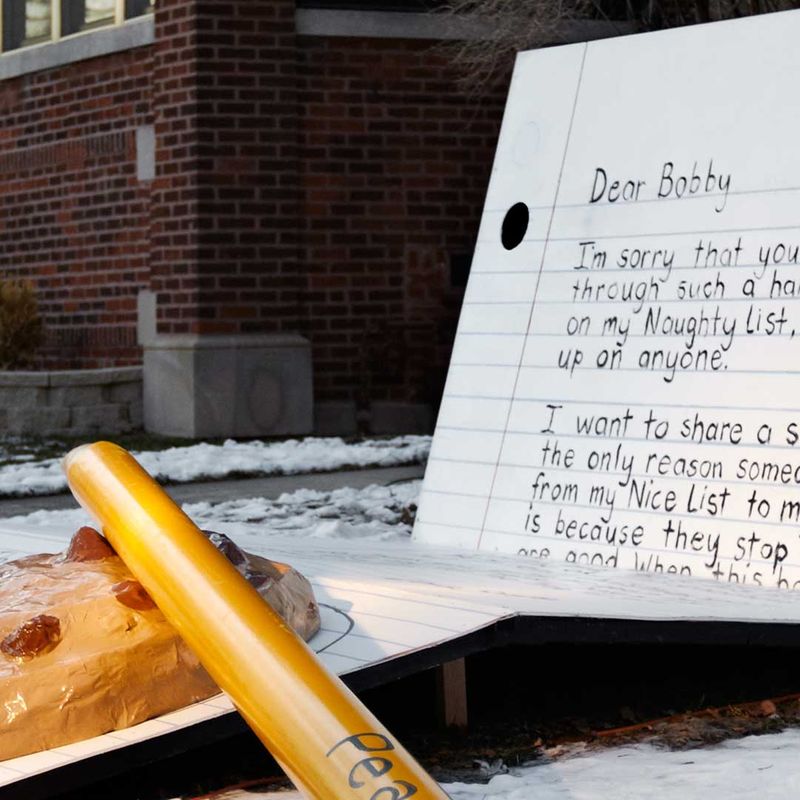 Dear Bobby
I'm sorry that you
through such a
on my Naughty List,
up on anyone.
I want to share a
the only reason
from my Nice List to
is because they stop
are good when this